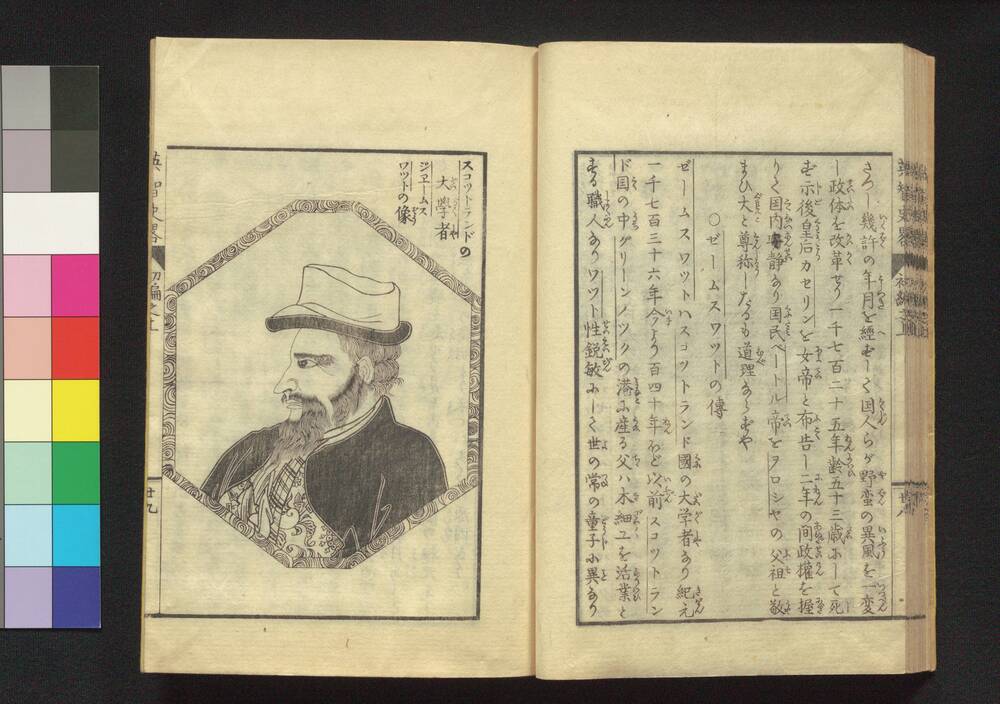 さつし幾許の年月を經ずして国人らが野蛮の異風を一変
し政体を改革せり一千七百二十五年齢五十三歳にして死
す示後皇后カセリンを女帝と布告し二年の间政權を握
りて国内静なり国民ペートル帝をヲロシヤの父祖と敬
まひ大と尊称したるも道理ならずや
○ゼームスワツトの傳
ゼームスワツトハスコツトランド國の大学者なり紀元
一千七百三十六年今より百四十年ほど以前スコツトラン
ド国の中グリーンノツクの港に産る父ハ木細工を活業と
する職人なりワツト性鋭敏にして世の常の童子に異なり
スコツトランドの
大學者
ジエームス
ワツトの像
英智史畧
初編之上
廿九